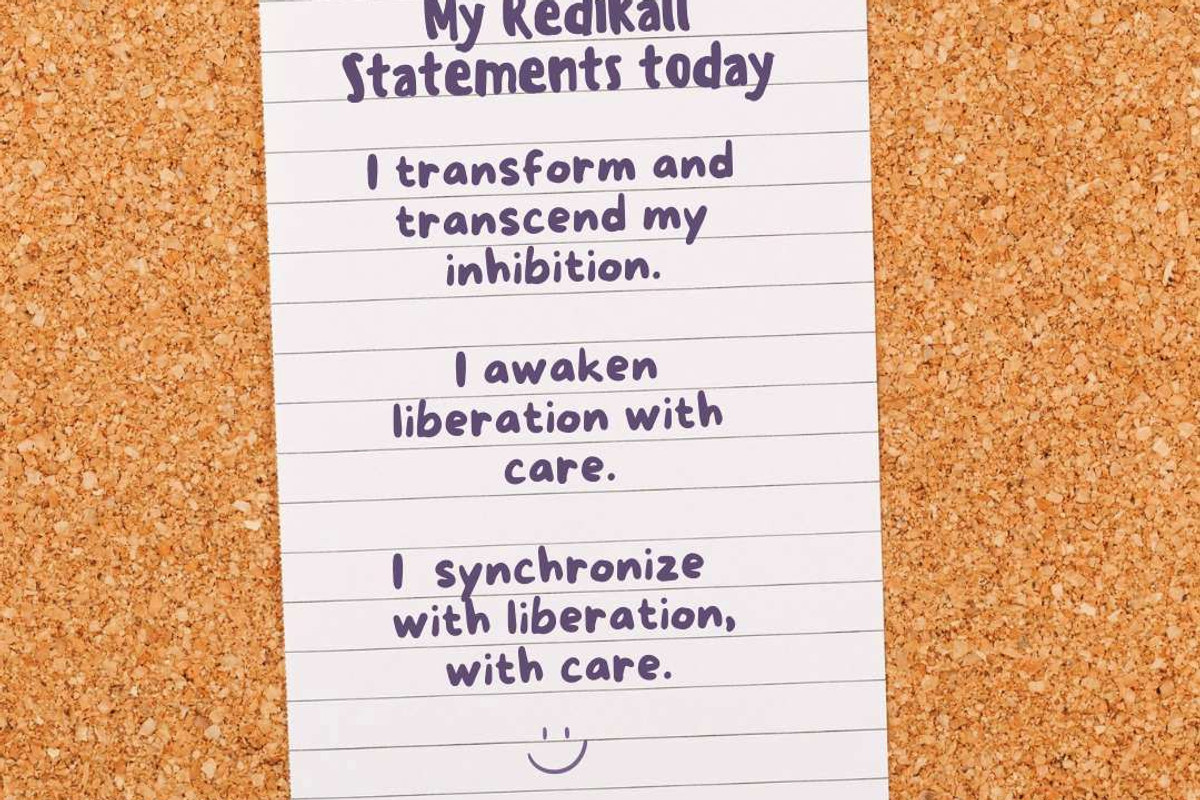 My Redikall
Statements today
I transform and
transcend my
inhibition.
I awaken
liberation with
care.
I synchronize
with liberation,
with care.